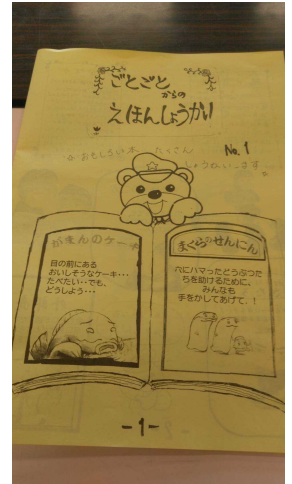 ごとごと
からの
えほんしょうかい
No.1
☆おもしろい本 たくさん
しょうかいします
がまんのケーキ
目の前にある
おいしそうなケーキ・・・
たべたい・・でも、
どうしよう・・・
まくらのせんにん
へにハマったどうぶつた
ちを助けるために、
みんなも
手をかしてあげて、!
-1-